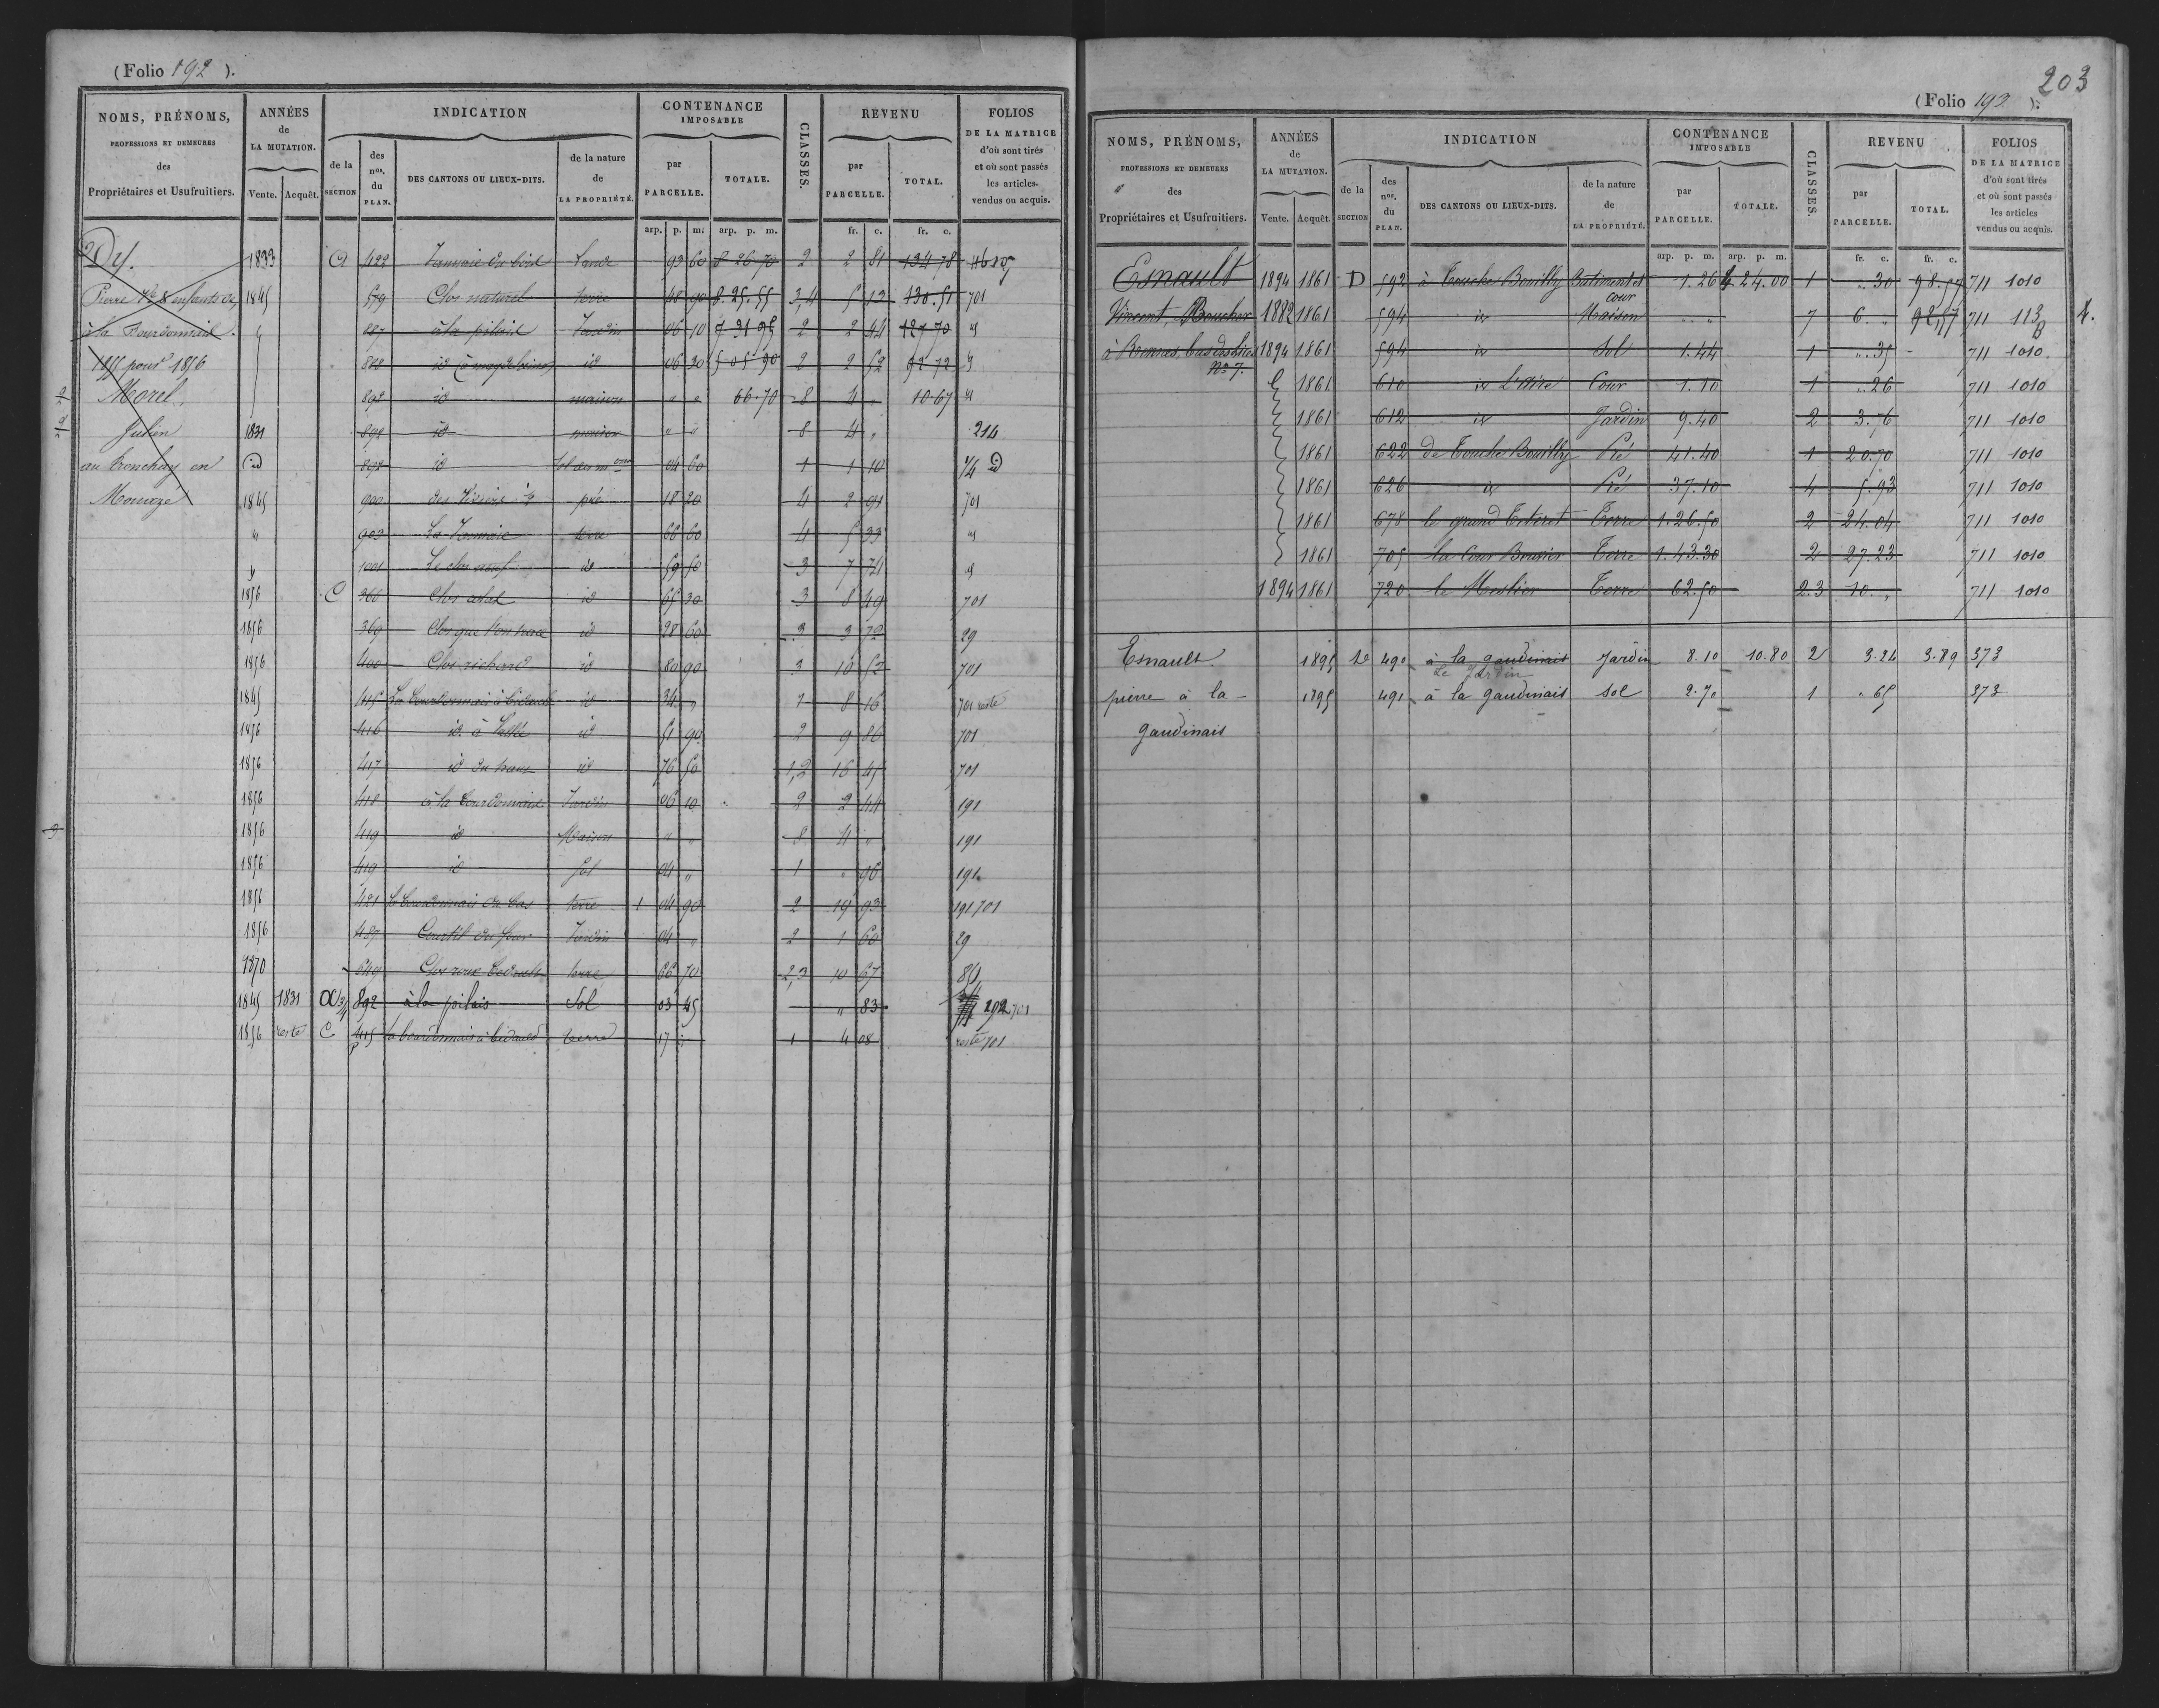 (Folio 192 ).
NOMS, PRÉNOMS,
PROFESSIONS ET DEMEURES
des
Propriétaires et Usufruitiers.
ANNÉES
de
LA MUTATION.
Vente. Acquêt.
INDICATION
de la
SECTION
des
nos.
du
PLAN.
DES CANTONS OU LIEUX-DITS.
de la nature
de
LA PROPRIÉTÉ.
CONTENANCE
IMPOSABLE
par
PARCELLE.
TOTALE.
CLASSES.
REVENU
par
PARCELLE.
TOTAL.
FOLIOS
DE LA MATRICE
d'où sont tirés
et où sont passés
les articles
vendus ou acquis.
arp. p. m. arp. p. m. fr. c. fr. c.
1833 A 422 Lande 93 60 8 26 70 2 2 81 134 78
Pierre enfants de 1845 579 Clos naturel terre 48 90 8.25.55 3,4 5 13 130.51 701
à la Bourdonnais 887 à la pilais Jardin 06 10 7 31 95 2 2 44 127 70
1855 pour 1856 888 id id 06 30 5 05 90 2 2 52 92 72
Morel 892 id maison " " 66.70 8 4 " 10.67
Julien 1831 892 id maison " " 8 4 " 214
au tronchay en id 892 id Sol des mons 04 60 1 1 10 3/4 id
1845 900 pré 18 20 4 2 91 701
903 terre 66 60 4 5 33
1001 Le clos neuf id 59 50 3 7 74
1856 C 366 Clos id 65 30 3 8 49 701
1856 369 id 28 60 3 3 72 29
1856 400 Clos richard id 80 90 3 10 52 701
1845 415 La bourdonnais à bidault id 34 " 1 8 16 701 reste
1856 416 id id 51 90 2 9 86 701
1856 417 id du haut id 76 50 1,2 16 45 701
1856 418 à la bourdonnais Jardin 06 10 2 2 44 191
1856 419 id Maison " " 8 4 " 191
1856 419 id Sol 04 " 1 " 96 191
1856 421 La bourdonnais du bas terre 1 04 90 2 19 93 191 701
1856 437 Courtil du four Jardin 04 " 2 1 60 29
1870 649 Clos terre 66 70 2,3 10 67
1845 1831 3/4 892 à la pilais Sol 03 45 " 83 192 701
1856 reste C 415 p la bourdonnais à bidault terre 17 " 1 4 08 reste 701
203
(Folio 192 ).
NOMS, PRÉNOMS,
PROFESSIONS ET DEMEURES
des
Propriétaires et Usufruitiers.
ANNÉES
de
LA MUTATION.
Vente. Acquêt.
INDICATION
de la
SECTION
des
nos.
du
PLAN.
DES CANTONS OU LIEUX-DITS.
de la nature
de
LA PROPRIÉTÉ.
CONTENANCE
IMPOSABLE
par
PARCELLE.
TOTALE.
CLASSES.
REVENU
par
PARCELLE.
TOTAL.
FOLIOS
DE LA MATRICE
d'où sont tirés
et où sont passés
les articles
vendus ou acquis.
arp. p. m. arp. p. m. fr. c. fr. c.
Esnault 1894 1861 D 592 à Touche Bouilly Batiment et cour 1.26 4.24.00 1 ".30 98.57 711 1010
Vincent, Boucher 1882 1861 594 id Maison " 7 6." 92,57 711 113
à Rennes, bas des Lices 1894 1861 594 id Sol 1.44 1 ".35 711 1010
No 7.
1861 610 id L'aire Cour 1.10 1 ".26 711 1010
1861 612 id Jardin 9.40 2 3.76 711 1010
1861 622 de Touche Bouilly Pré 41.40 1 20.70 711 1010
1861 626 id Pré 37.10 4 5.93 711 1010
1861 678 le grand Terre 1.26.50 2 24.04 711 1010
1861 705 la Cour Terre 1.43.30 2 27.23 711 1010
1894 1861 720 le Meslier Terre 62.50 2.3 10." 711 1010
Esnault 1895 490 à la gaudinais Jardin 8.10 10.80 2 3.24 3.89 373
Le Jardin
pierre à la 1895 491 à la gaudinais sol 2.70 1 ".65 373
gaudinais